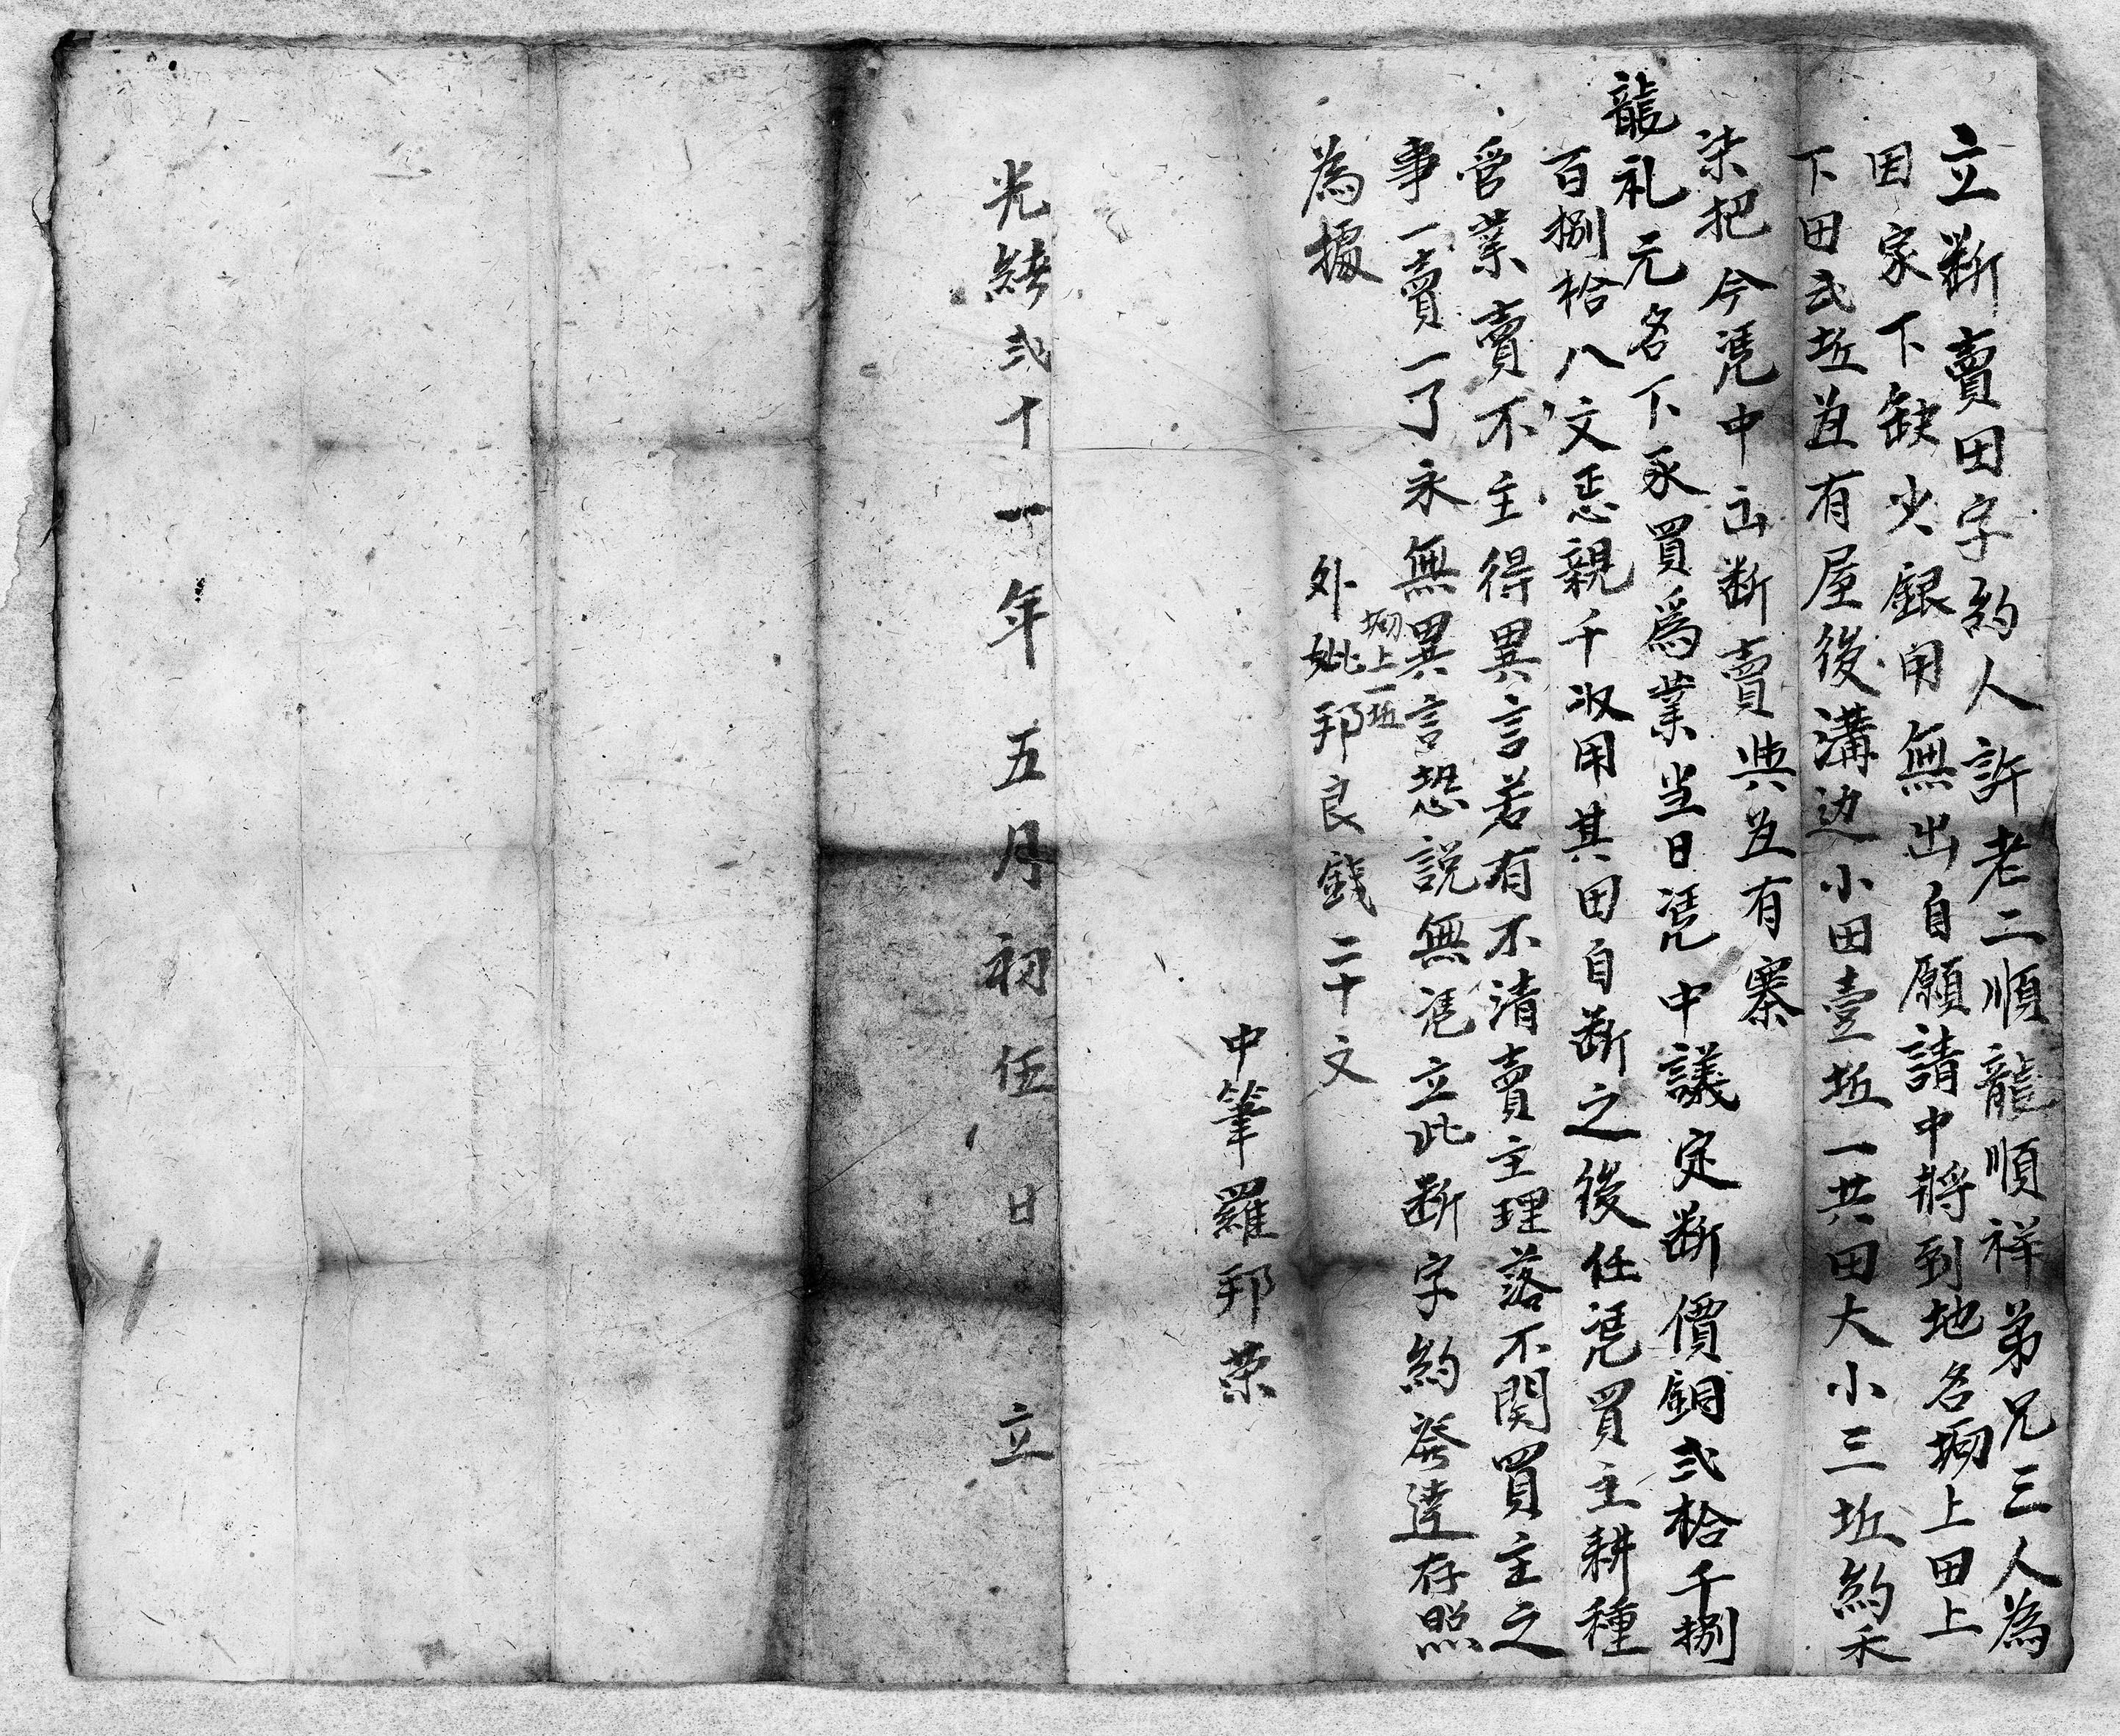 立斷賣田字約人許老二順龍順祥弟兄三人為
因家下缺少銀用無出自願請中將到地名坳上田上
下田弍坵並有屋後溝边小田壹坵一共田大小三坵約禾
柒把今凴中出断賣與並有寨
龍礼元名下承買爲業当日凴中議定断價銅弍拾千捌
百捌拾八文恁親千収用其田自断之後任凴買主耕種
管業賣不主得異言若有不清賣主理落不関買主之
事一賣一了永無異言恐説無凴立此断字約發達存照
為據
坳上一坵
外妣邦良錢二十文
中筆羅邦荣
光緒弍十一年五月初伍日立